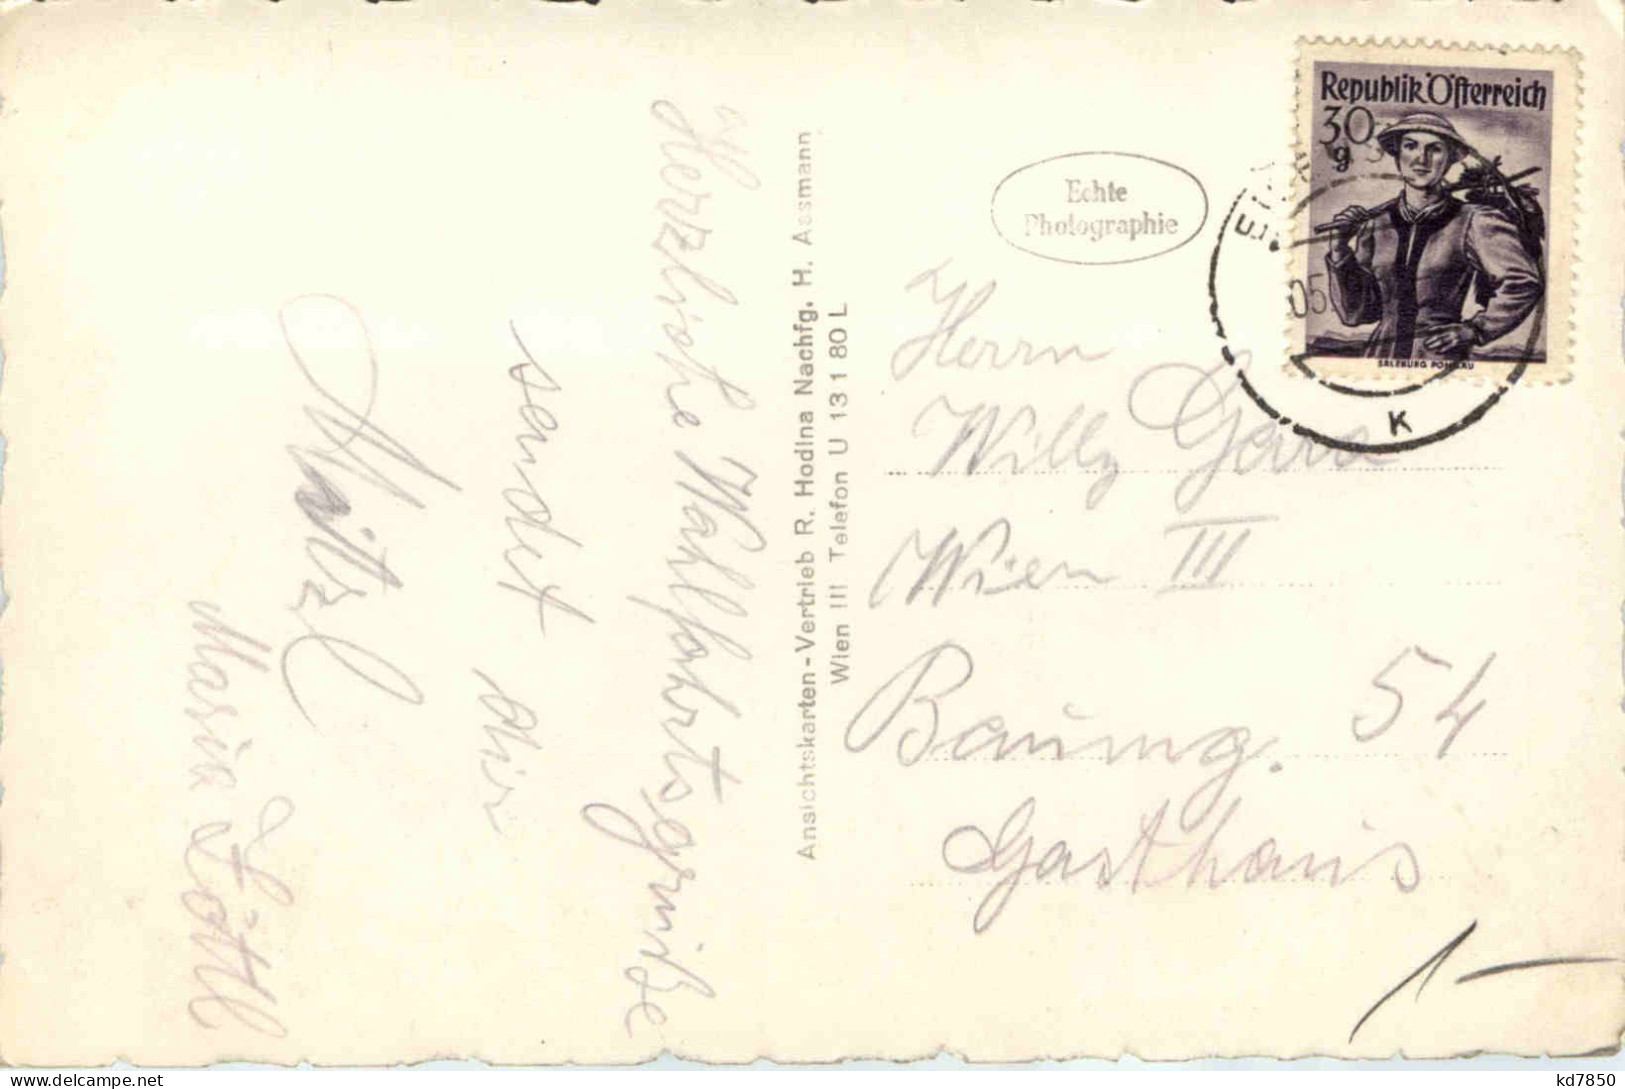 Herzliche Wahlfahrtsgrüße
sendet dir
Mitzl
Maria Löttl
Ansichtskarten-Vertrieb R. Hodina Nachfg. H. Assmann
Wien III Telefon U 13 1 80 L
Echte
Photographie
Republik Österreich
30
g
SALZBURG PONGAU
05
K
Herrn
Willy
Wien III
Baumg. 54
Gasthaus
1-
kd7850